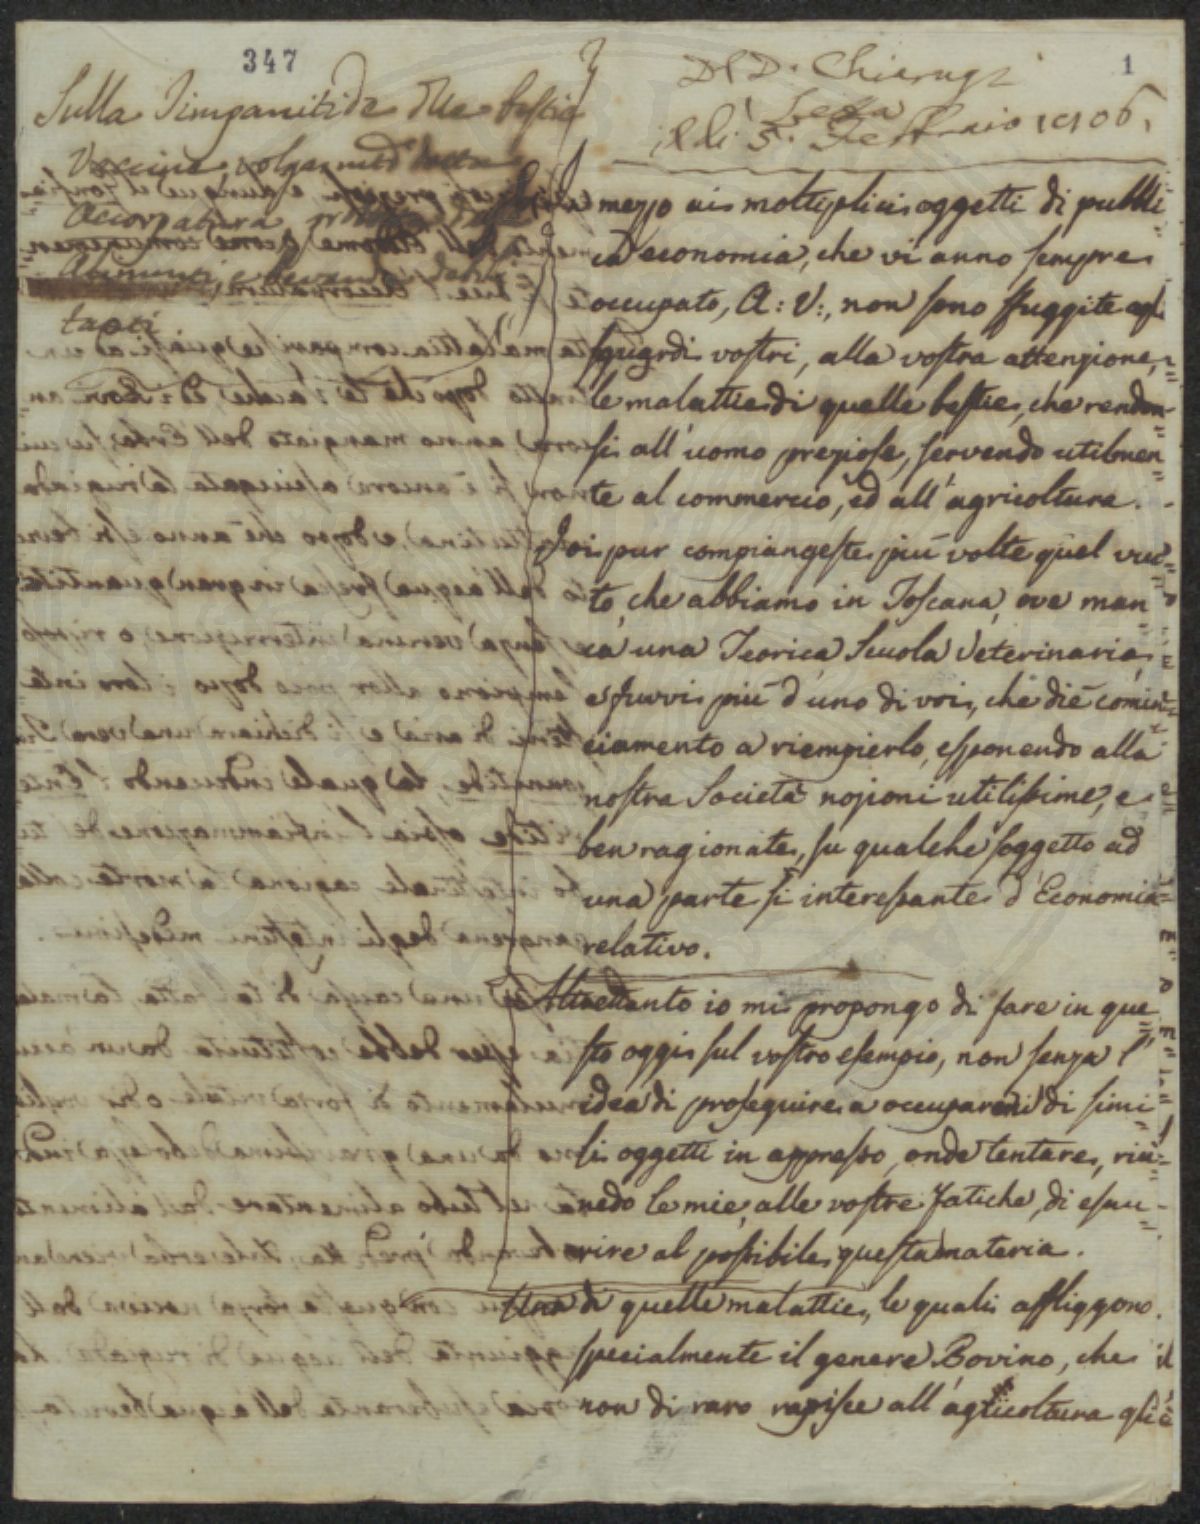 347
1
Sulla Timpanitide delle bestie
Vaccine, volgarmte detta
Accorpatura prodotta dagli
Alimenti, e bevande
tanti
Del D. Chiarugi
Letta
lì 5. Febbraio 1806.
In mezzo ai moltiplici oggetti di pubbli
ca economia, che vi anno sempre
occupato, A: V:, non sono sfuggite agli
sguardi vostri, alla vostra attenzione,
le malattie di quelle bestie, che rendon
si all'uomo preziose, servendo utilmen
te al commercio, ed all'agricoltura.
Voi pur compiangeste più volte quel vuo
to, che abbiamo in Toscana, ove man
ca una Teorica Scuola Veterinaria,
e furvi più d'uno di voi, che diè comin
ciamento a riempierlo, esponendo alla
nostra Società nozioni utilissime, e
ben ragionate, su qualche soggetto ad
una parte sì interessante d'Economia
relativo.
Altrettanto io mi propongo di fare in que
sto oggi sul vostro esempio, non senza l'
idea di proseguire a occuparmi di simi
li oggetti in appresso, onde tentare, riu
nendo le mie, alle vostre fatiche, di esau
rire al possibile questa materia.
Una di quelle malattie, le quali affliggono
specialmente il genere Bovino, che il
non di raro rapisce all'agricoltura gli è